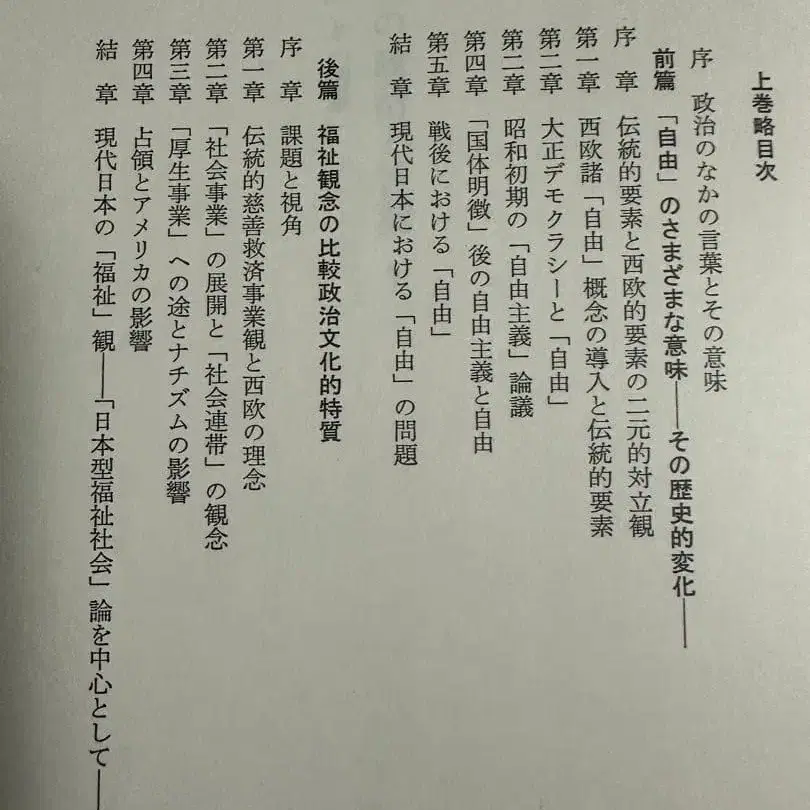 上巻略目次
序 政治のなかの言葉とその意味
前篇 「自由」のさまざまな意味――その歴史的変化――
序章 伝統的要素と西欧的要素の二元的対立観
第一章 西欧諸「自由」概念の導入と伝統的要素
第二章 大正デモクラシーと「自由」
第二章 昭和初期の「自由主義」論議
第四章 「国体明徴」後の自由主義と自由
第五章 戦後における「自由」
結章 現代日本における「自由」の問題
後篇 福祉観念の比較政治文化的特質
序章 課題と視角
第一章 伝統的慈善救済事業観と西欧の理念
第二章 「社会事業」の展開と「社会連帯」の観念
第三章 「厚生事業」への途とナチズムの影響
第四章 占領とアメリカの影響
結章 現代日本の「福祉」観――「日本型福祉社会」論を中心として――